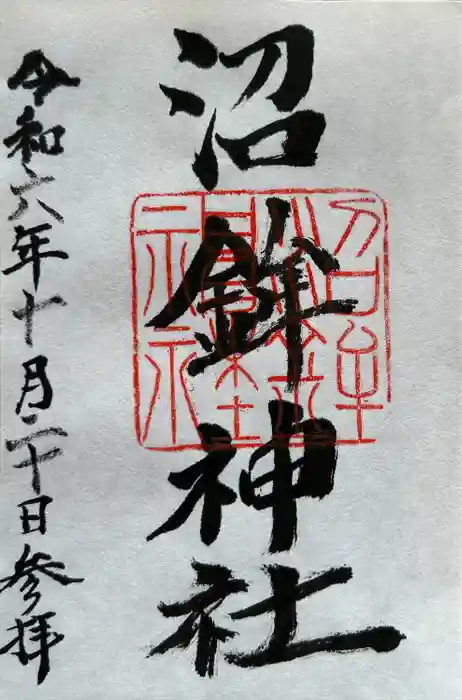 沼鉾神社
令和六年十月二十日参拝